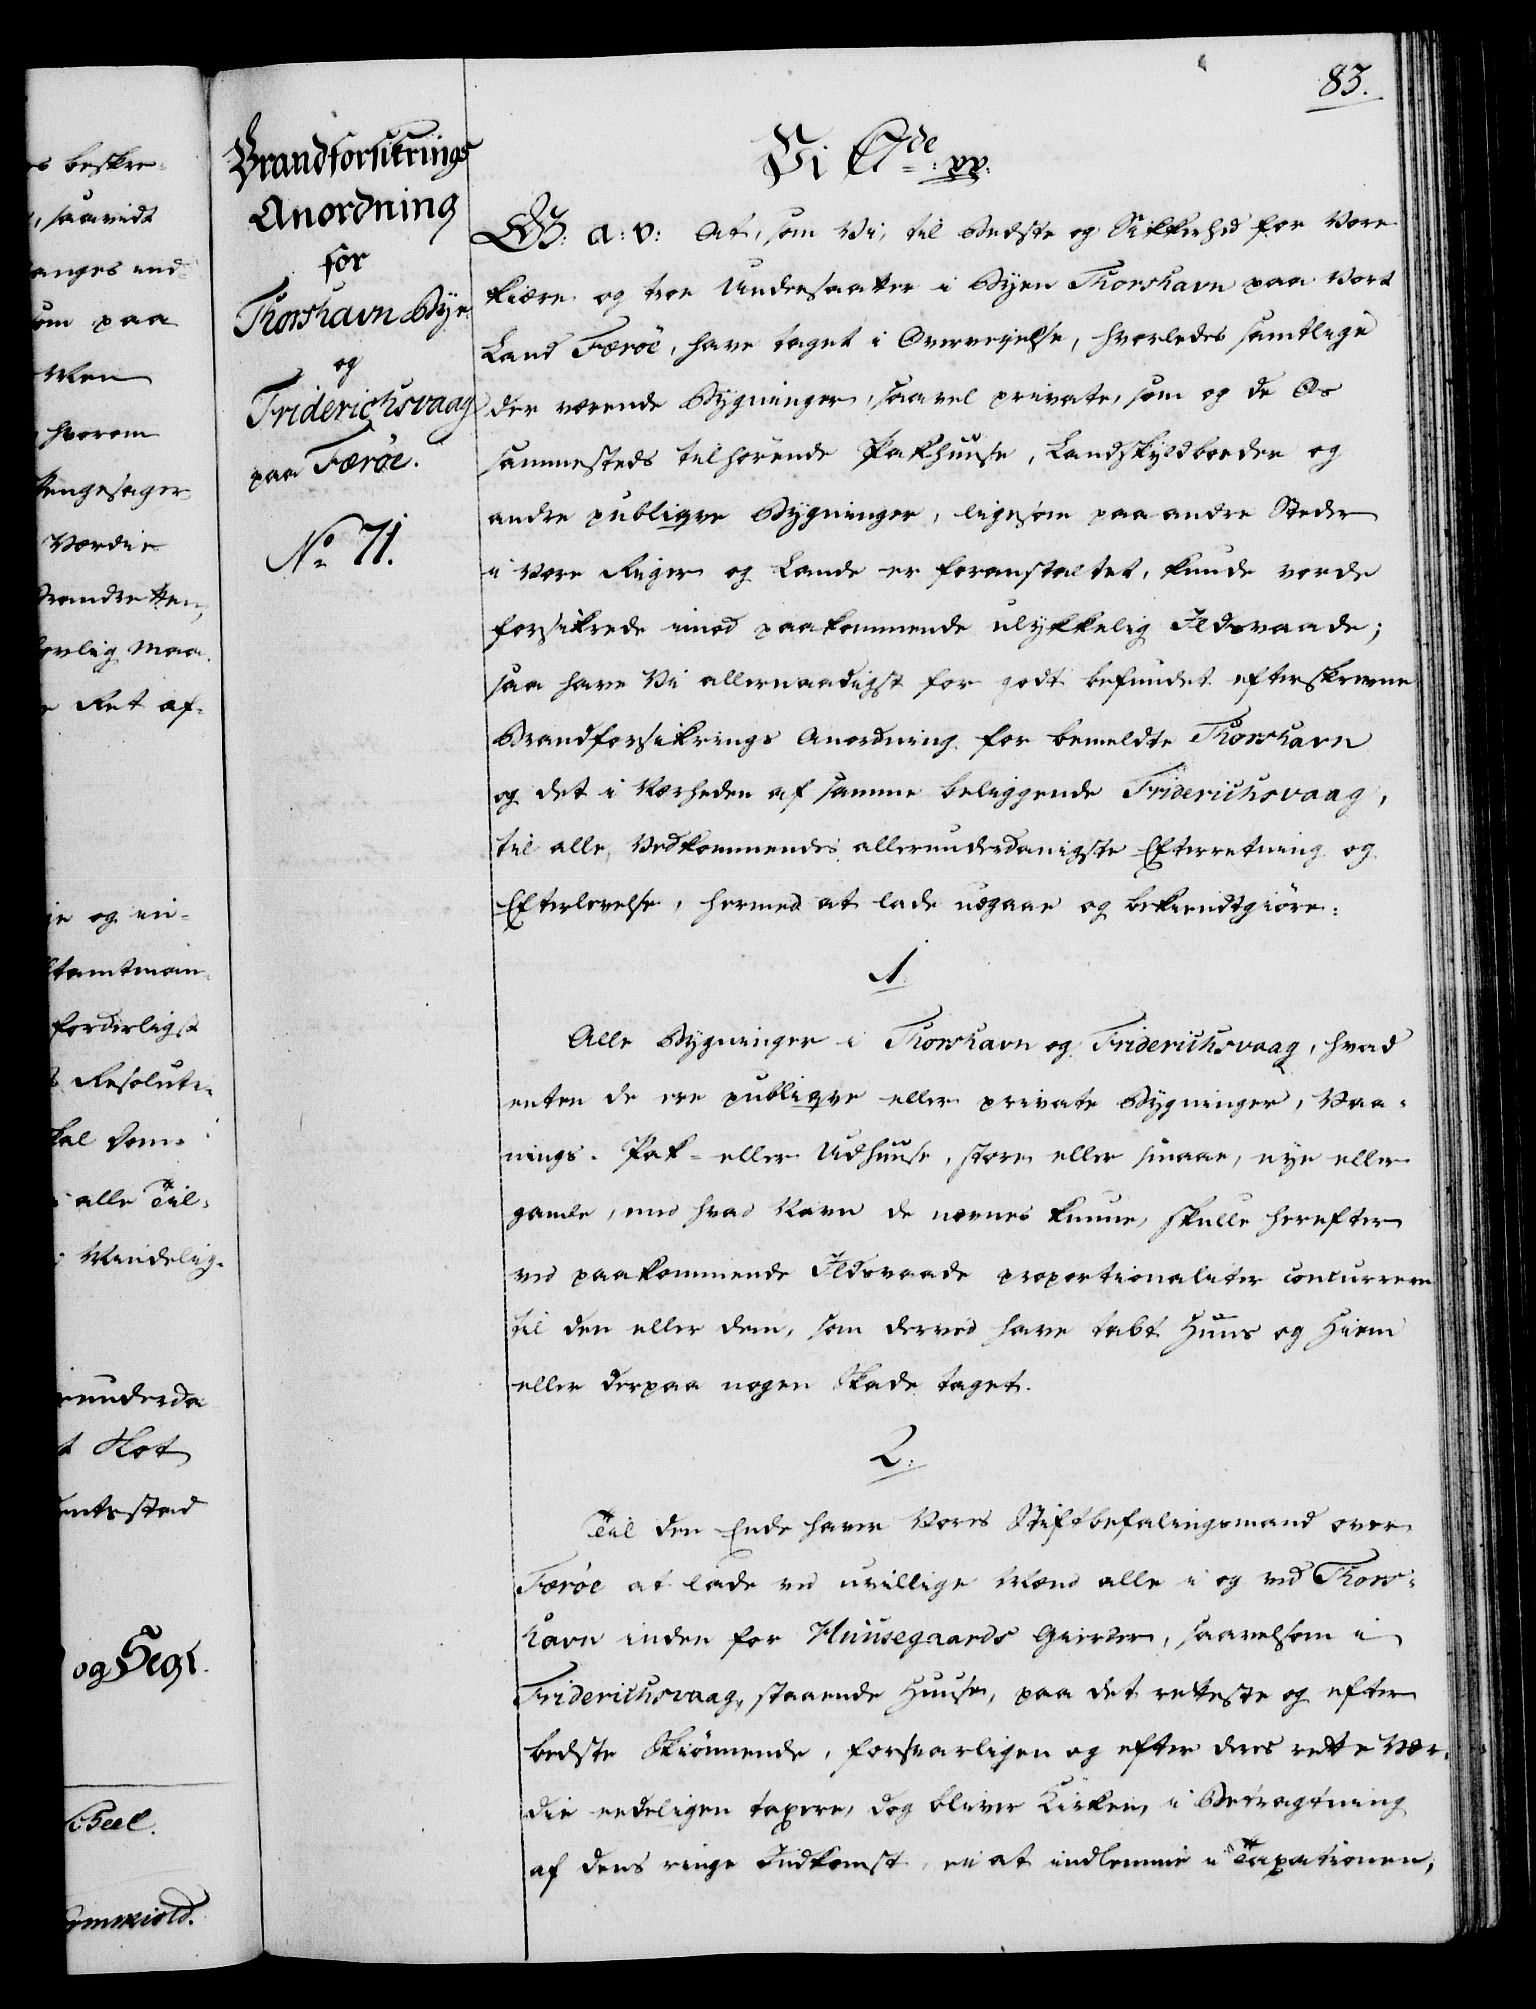 83.
Brandforsikrings
Anordning
for
Thorshavn Bye
og
Friderichsvaag
paa Færöe.
No 71.
Vi C 7de: pp:
G: A: V: At, som Vi, til Bedste og Sikkerhed for Vore
kiære og troe Undersaatter i Byen Thorshavn paa Vort
Land Færöe, have taget i Overveyelse, hvorledes samtlige
der værende Bygninger, saavel private, som og de Os
sammesteds tilhörende Pakhuuse, Landskyldboeder og
andre publiqve Bygninger, ligesom paa andre Steder
i Vore Riger og Lande er foranstaltet, kunde vorde
forsikrede imod paakommende ulykkelig Ildsvaade;
saa have Vi allernaadigst for godt befundet efterskrevne
Brandforsikrings Anordning for bemeldte Thorshavn
og det i Nærheden af samme beliggende Friderichsvaag,
til alle Vedkommendes allerunderdanigste Efterretning og
Efterlevelse, hermed at lade udgaae og bekiendtgiöre:
1.
Alle Bygninger i Thorshavn og Friderichsvaag, hvad
enten de ere publiqve eller private Bygninger, Vaa-
nings- Pak- eller Udhuuse, store eller smaae, nye eller
gamle, med hvad Navn de nævnes kunne, skulle herefter
ved paakommende Ildsvaade proportionaliter concurrere
til den eller dem, som derved have tabt Huus og Hiem
eller derpaa nogen Skade taget.
2.
Til den Ende haver Vores Stiftbefalingsmand over
Færöe at lade ved uvillige Mænd alle i og ved Thors-
havn inden for Huusegaards Gierder, saavelsom i
Friderichsvaag, staaende Huuse, paa det retteste og efter
bedste Skiönnende, forsvarligen og efter deres rette Vær-
die eedeligen taxere, dog bliver Kirken, i Betragtning
af dens ringe Indkomst, ei at indlemme i Taxationen,
es beskre-
, saavidt
langes ind
om paa
Men
hvorom
Pengesager
Værdie
lovlig Maa-
Ret af-
ie og in-
tamtmæn-
forderligst
Resoluti-
kal Dom-
alle Til-
Mindelig-
erunderda
t Slot
og Segl.